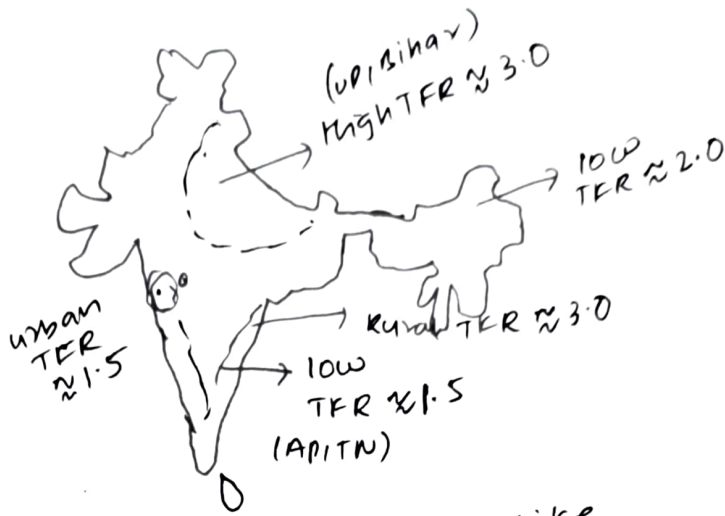 (UP, Bihar)
High TFR ≈ 3.0
low
TFR ≈ 2.0
urban
TFR
≈ 1.5
Rural TFR ≈ 3.0
low
TFR ≈ 1.5
(AP, TN)
like